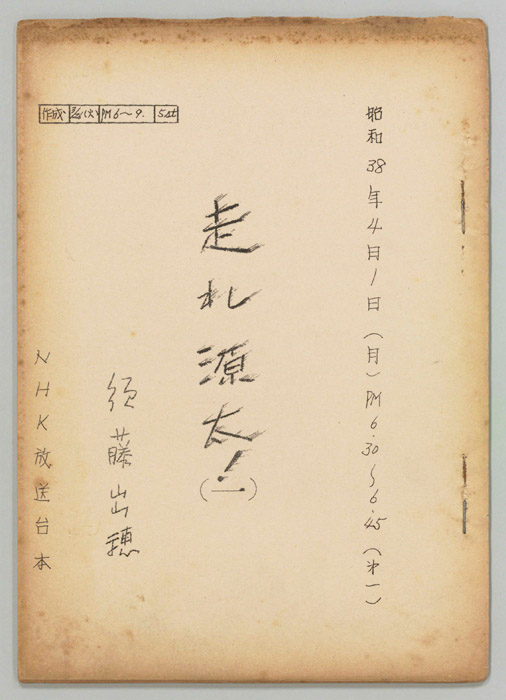 昭和38年4月1日（月）PM6.30〜6.45（第一）
走れ源太！（一）
須藤出穂
NHK放送台本
作成 PM6〜9. 5st